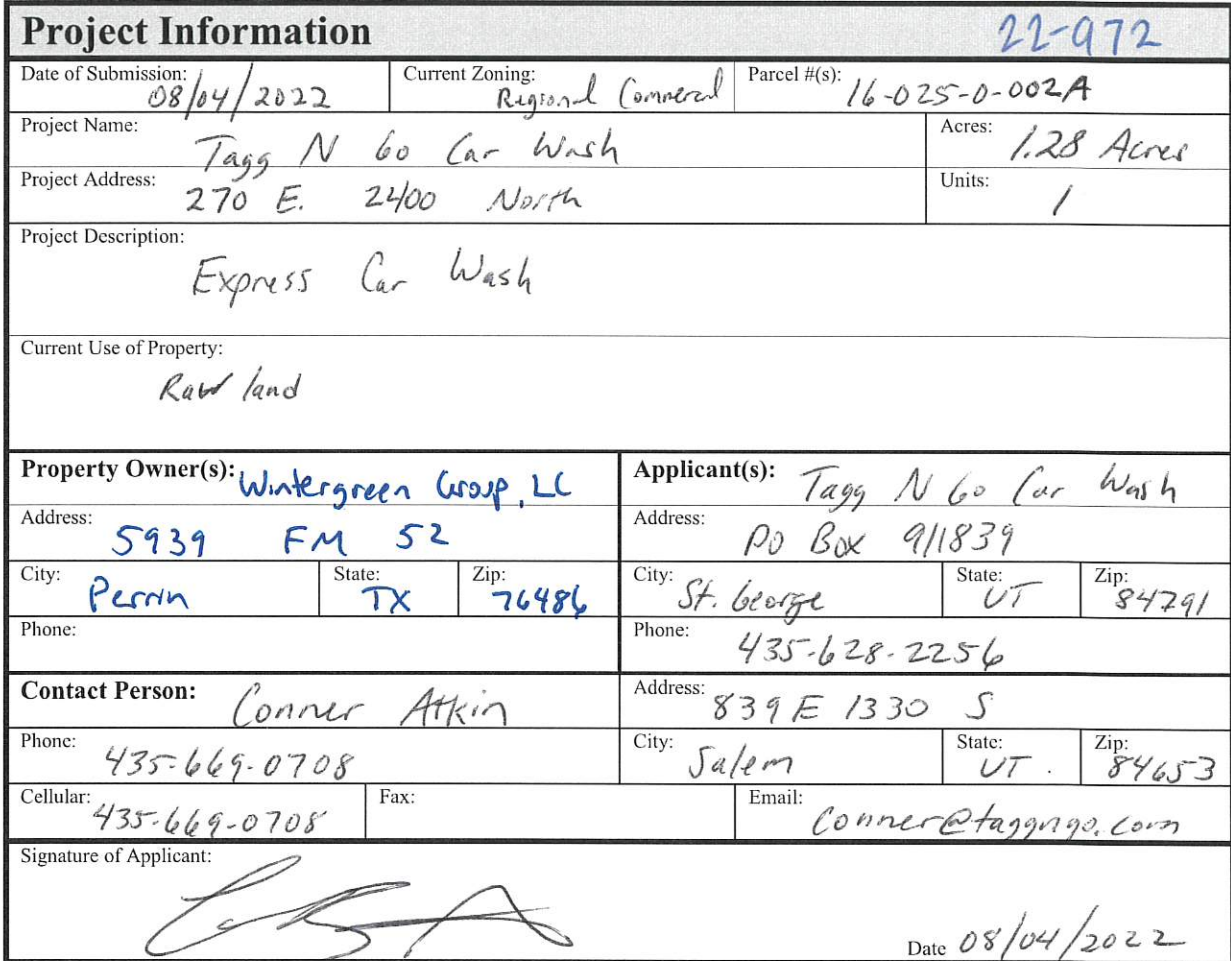 Project Information 22-972
Date of Submission: 08/04/2022 Current Zoning: Regional Commercal Parcel #(s): 16-025-0-002A
Project Name: Tagg N Go Car Wash Acres: 1.28 Acres
Project Address: 270 E. 2400 North Units: 1
Project Description:
Express Car Wash
Current Use of Property:
Raw land
Property Owner(s): Wintergreen Group, LC Applicant(s): Tagg N Go Car Wash
Address: 5939 FM 52 Address: PO Box 911839
City: Perrin State: TX Zip: 76486 City: St. George State: UT Zip: 84791
Phone: Phone: 435-628-2256
Contact Person: Conner Atkin Address: 839 E 1330 S
Phone: 435-669-0708 City: Salem State: UT. Zip: 84653
Cellular: 435-669-0708 Fax: Email: Conner@taggngo.com
Signature of Applicant:
Date 08/04/2022